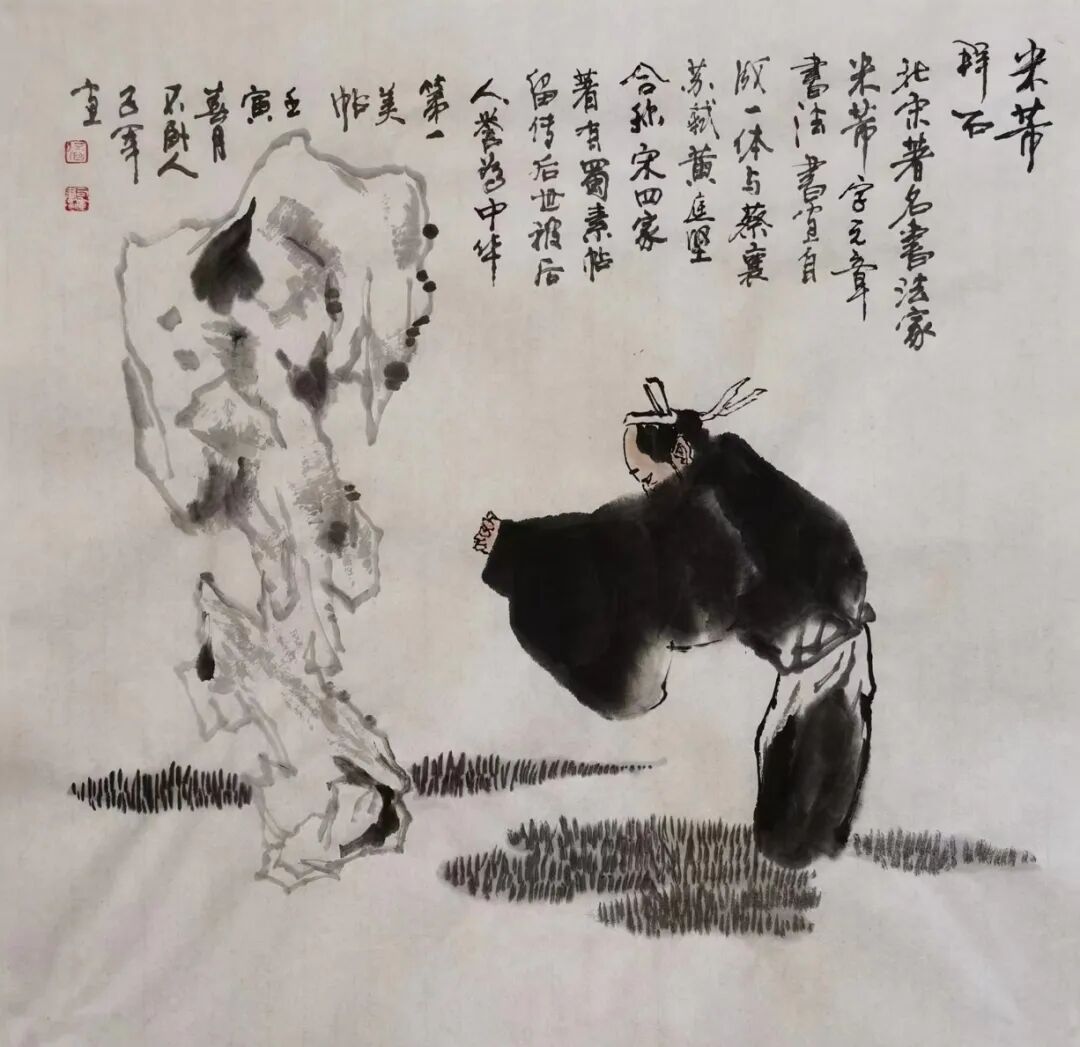 米芾
拜石
北宋著名書法家
米芾字元章
書法書画自
成一体与蔡襄
苏轼黄庭坚
合称宋四家
著有蜀素帖
留传后世被后
人誉为中华
第一
美
帖
壬
寅
春月
不卧人